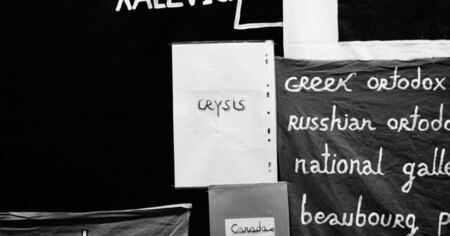 CRYSIS
Greek ortodox
Russhian ortodo
national galle
beaubourg p
Canada